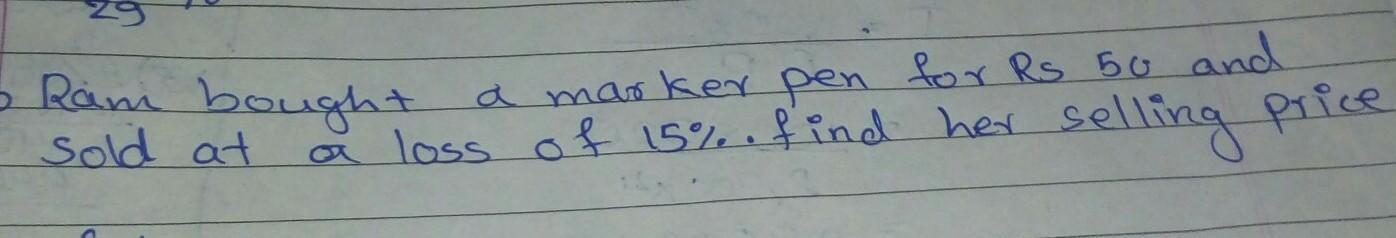 29
Ram bought a marker pen for Rs 50 and
sold at a loss of 15%. find her selling price